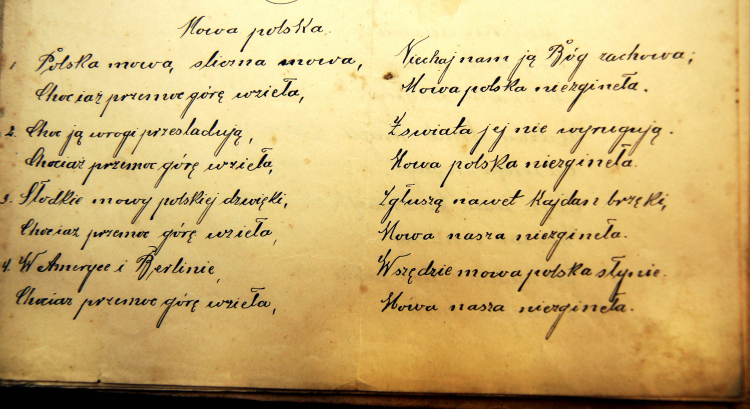 Mowa polska.
1. Polska mowa, sliczna mowa, Niechaj nam ją Bóg zachowa;
Chociaż przemoc górę wzieła, Mowa polska niezgineła.
2. Choc ją wrogi przesladują, Z swiata jej nie wyrugują.
Chociaż przemoc górę wzieła, Mowa polska niezgineła.
3. Słodkie mowy polskiej dzwięki, Zgłuszą nawet Kajdan brzęki,
Chociaz przemoc górę wzieła, Mowa nasza niezgineła.
4. W Ameryce i Berlinie, Wszędzie mowa polska słynie.
Chociaż przemoc górę wzieła, Mowa nasza niezgineła.